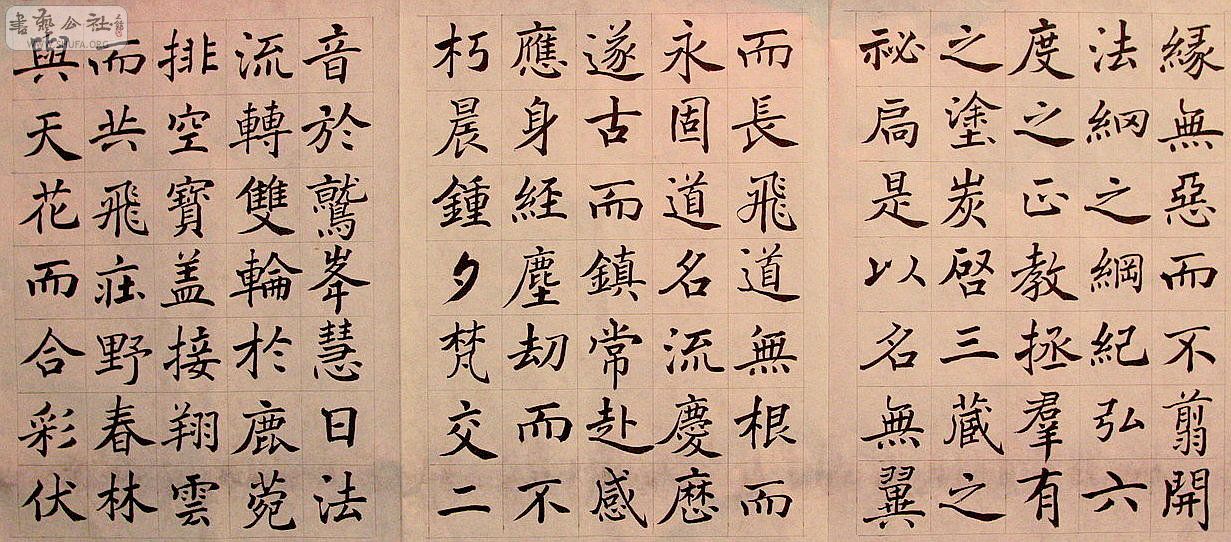 緣無惡而不翦開
法網之綱紀弘六
度之正教拯羣有
之塗炭啓三藏之
祕扃是以名無翼
而長飛道無根而
永固道名流慶歴
遂古而鎮常赴感
應身經塵劫而不
朽晨鍾夕梵交二
音於鷲峯慧日法
流轉雙輪於鹿菀
排空寶盖接翔雲
而共飛莊野春林
與天花而合彩伏
書藝公社
WWW.SHUFA.ORG